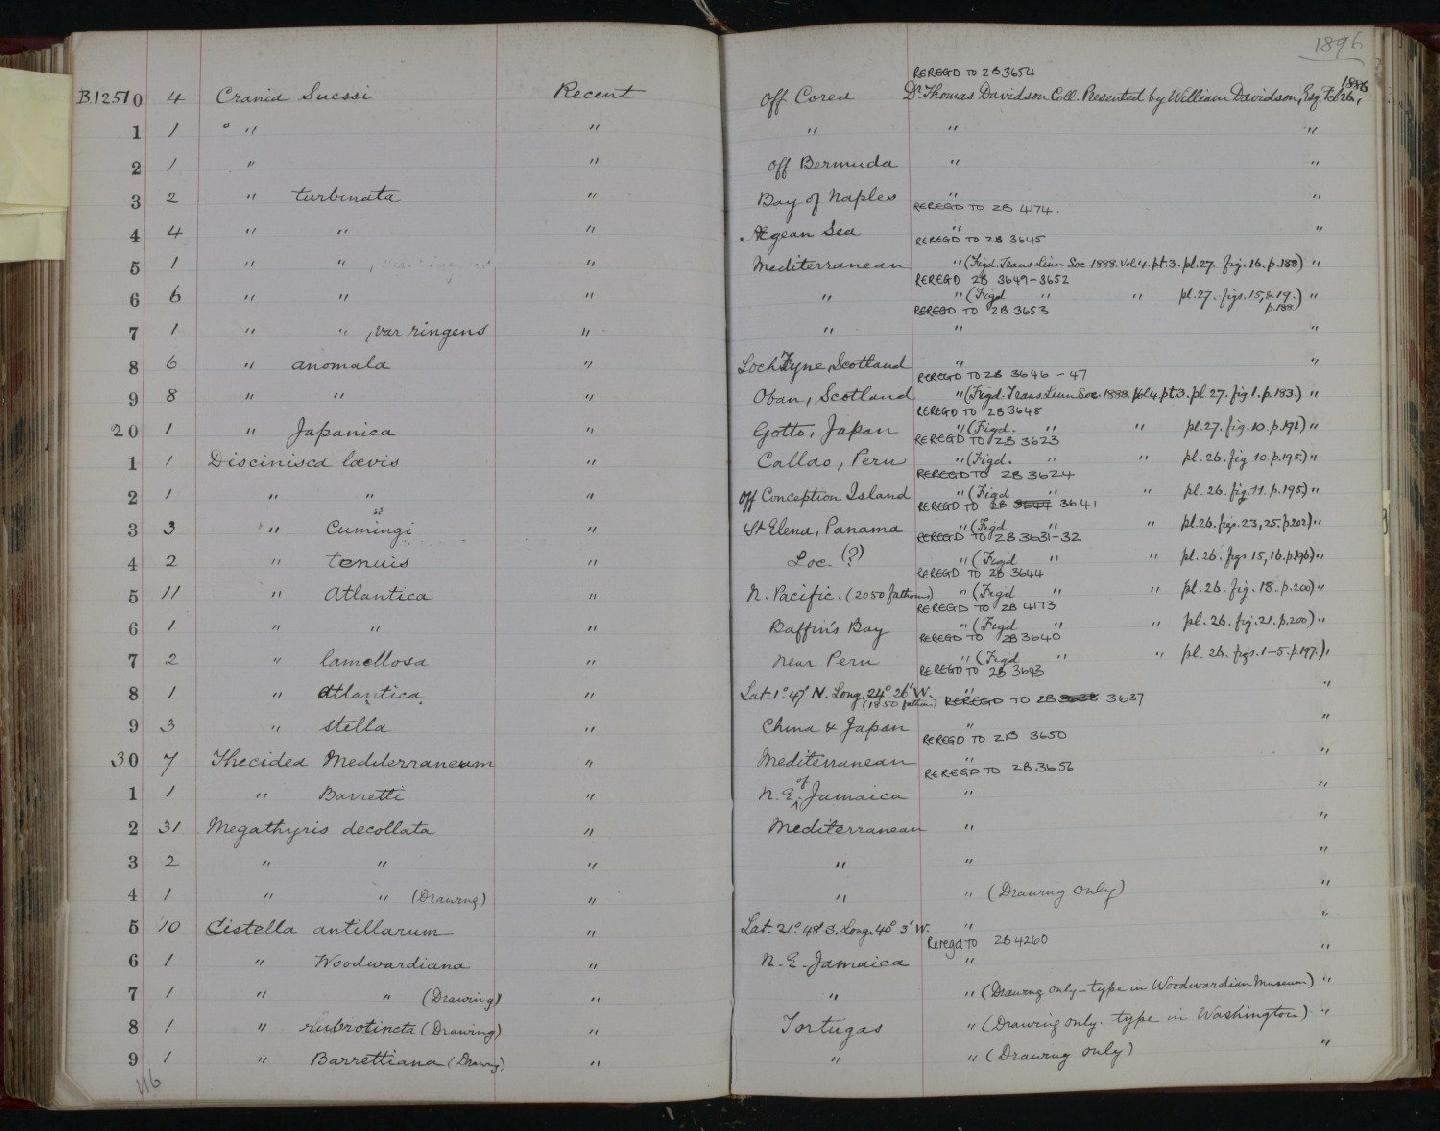 1896
REREGD TO ZB 3654
B.12510 4 Crania Suessi Recent off Corea Dr. Thomas Davidson Coll. Presented by William Davidson, Esq. Feb 26, 1886
1 1 " " " " " "
2 1 " " off Bermuda " "
3 2 " turbinata " Bay of Naples " "
REREGD TO ZB 4174.
4 4 " " " Ægean Sea " "
REREGD TO ZB 3645
5 1 " " " Mediterranean " (Figd. Trans. Linn. Soc. 1888. Vol 4. pt. 3. pl. 27. fig. 16. p. 188) "
REREGD ZB 3649-3652
6 6 " " " " " (Figd " " pl. 27. figs. 15, & 19. p. 188.) "
REREGD TO ZB 3653
7 1 " " , var ringens " " " "
8 6 " anomala " Loch Fyne, Scotland " "
REREGD TO ZB 3646 - 47
9 8 " " " Oban, Scotland " (Figd. Trans. Linn. Soc. 1888. Vol 4. pt 3. pl. 27. fig 1. p. 183) "
REREGD TO ZB 3648
20 1 " Japanica " Gotto, Japan " (Figd. " " pl. 27. fig. 10. p. 191) "
REREGD TO ZB 3623
1 1 Discinisca lævis " Callao, Peru " (Figd. " " pl. 26. fig 10. p. 195.) "
REREGD TO ZB 3624
2 1 " " " off Conception Island " (Figd " " pl. 26. fig. 11. p. 195) "
REREGD TO ZB 3641
3 3 " Cumingi " St Elena, Panama " (Figd " " pl. 26. figs. 23, 25. p. 202) "
REREGD TO ZB 3631-32
4 2 " tenuis " Loc. (?) " (Figd " " pl. 26. figs 15, 16. p. 196) "
REREGD TO ZB 3644
5 11 " Atlantica " N. Pacific. (2050 fathoms) " (Figd " " pl. 26. fig. 18. p. 200) "
REREGD TO ZB 4173
6 1 " " " Baffin's Bay " (Figd " " pl. 26. fig. 21. p. 200) "
REREGD TO ZB 3640
7 2 " lamellosa " near Peru " (Figd " " pl. 26. figs. 1-5. p. 197.) "
REREGD TO ZB 3643
8 1 " atlantica " Lat 1° 47' N. Long. 24° 26' W. (1850 fathoms) " REREGD TO ZB 3637 "
9 3 " stella " China & Japan " "
REREGD TO ZB 3650
30 7 Thecidea Mediterraneum " Mediterranean " "
REREGD TO ZB 3656
1 1 " Barretti " N. E. of Jamaica " "
2 31 Megathyris decollata " Mediterranean " "
3 2 " " " " " "
4 1 " " (Drawing) " " " (Drawing only) "
5 10 Cistella antillarum " Lat. 21° 48' S. Long. 40° 3' W. " "
Reregd TO ZB 4260
6 1 " Woodwardiana " N. E. Jamaica " "
7 1 " " (Drawing) " " " (Drawing only - type in Woodwardian Museum) "
8 1 " rubrotincta (Drawing) " Tortugas " (Drawing only. type in Washington) "
9 1 " Barrettiana (Drawing) " " " (Drawing only) "
116